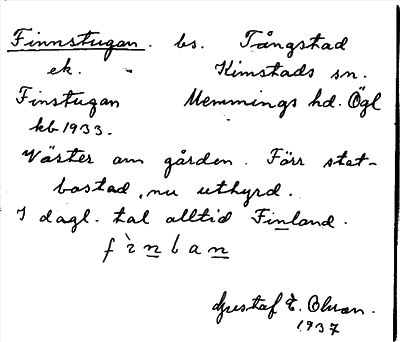 Finnstugan. bs. Tångstad
ek. Kimstads sn.
Finstugan Memmings hd. Ögl
kb 1933.
Väster om gården. Förr stat-
bostad, nu uthyrd.
I dagl. tal alltid Finland.
f ì n l a n
Gustaf E. Olson.
1937